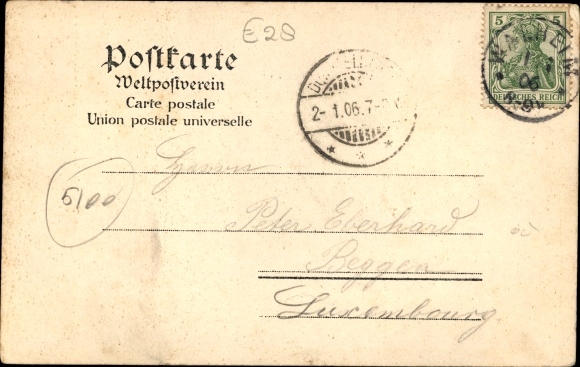 E28
Postkarte
Weltpostverein
Carte postale
Union postale universelle
5 5
DEUTSCHES REICH
2- 1.06.7-
Herrn
Peter Eberhard
Beggen
Luxembourg
5/00